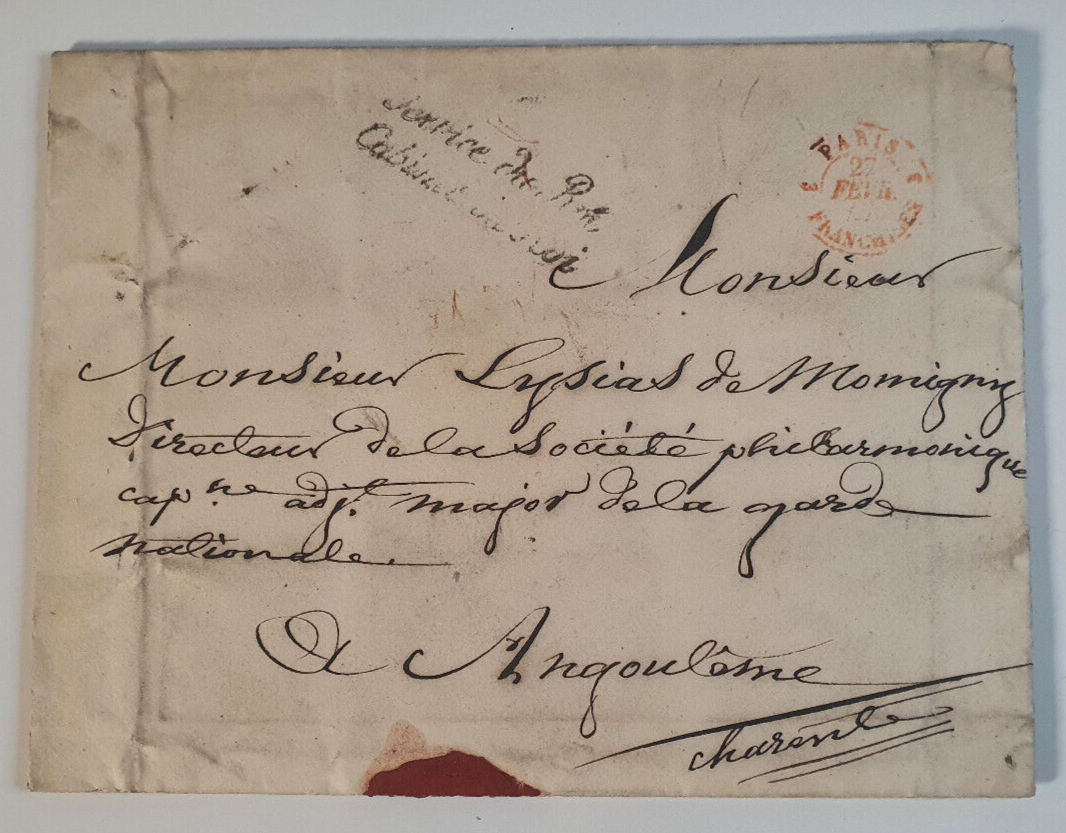 Service du Roi,
Cabinet du Roi
PARIS
27
FEVR.
FRANCHISES
Monsieur
Monsieur Lysias de Momigny
Directeur de la Société philharmonique
cap.ne adj.t major de la garde
nationale.
A Angoulême
charente